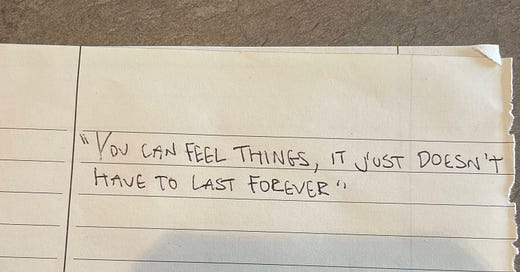 "YOU CAN FEEL THINGS, IT JUST DOESN'T
HAVE TO LAST FOREVER"